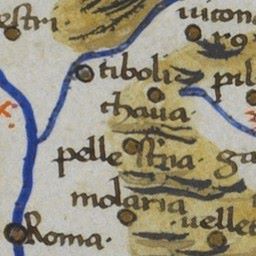 estri.
uicon
ro
tiboli
pil
thaua
pelle strina.
ga
molaria
uellet
Roma.